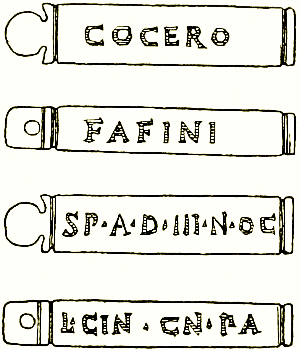 COCERO
FAFINI
SP·A·D·III·N·OC
L·CIN·CN·PA